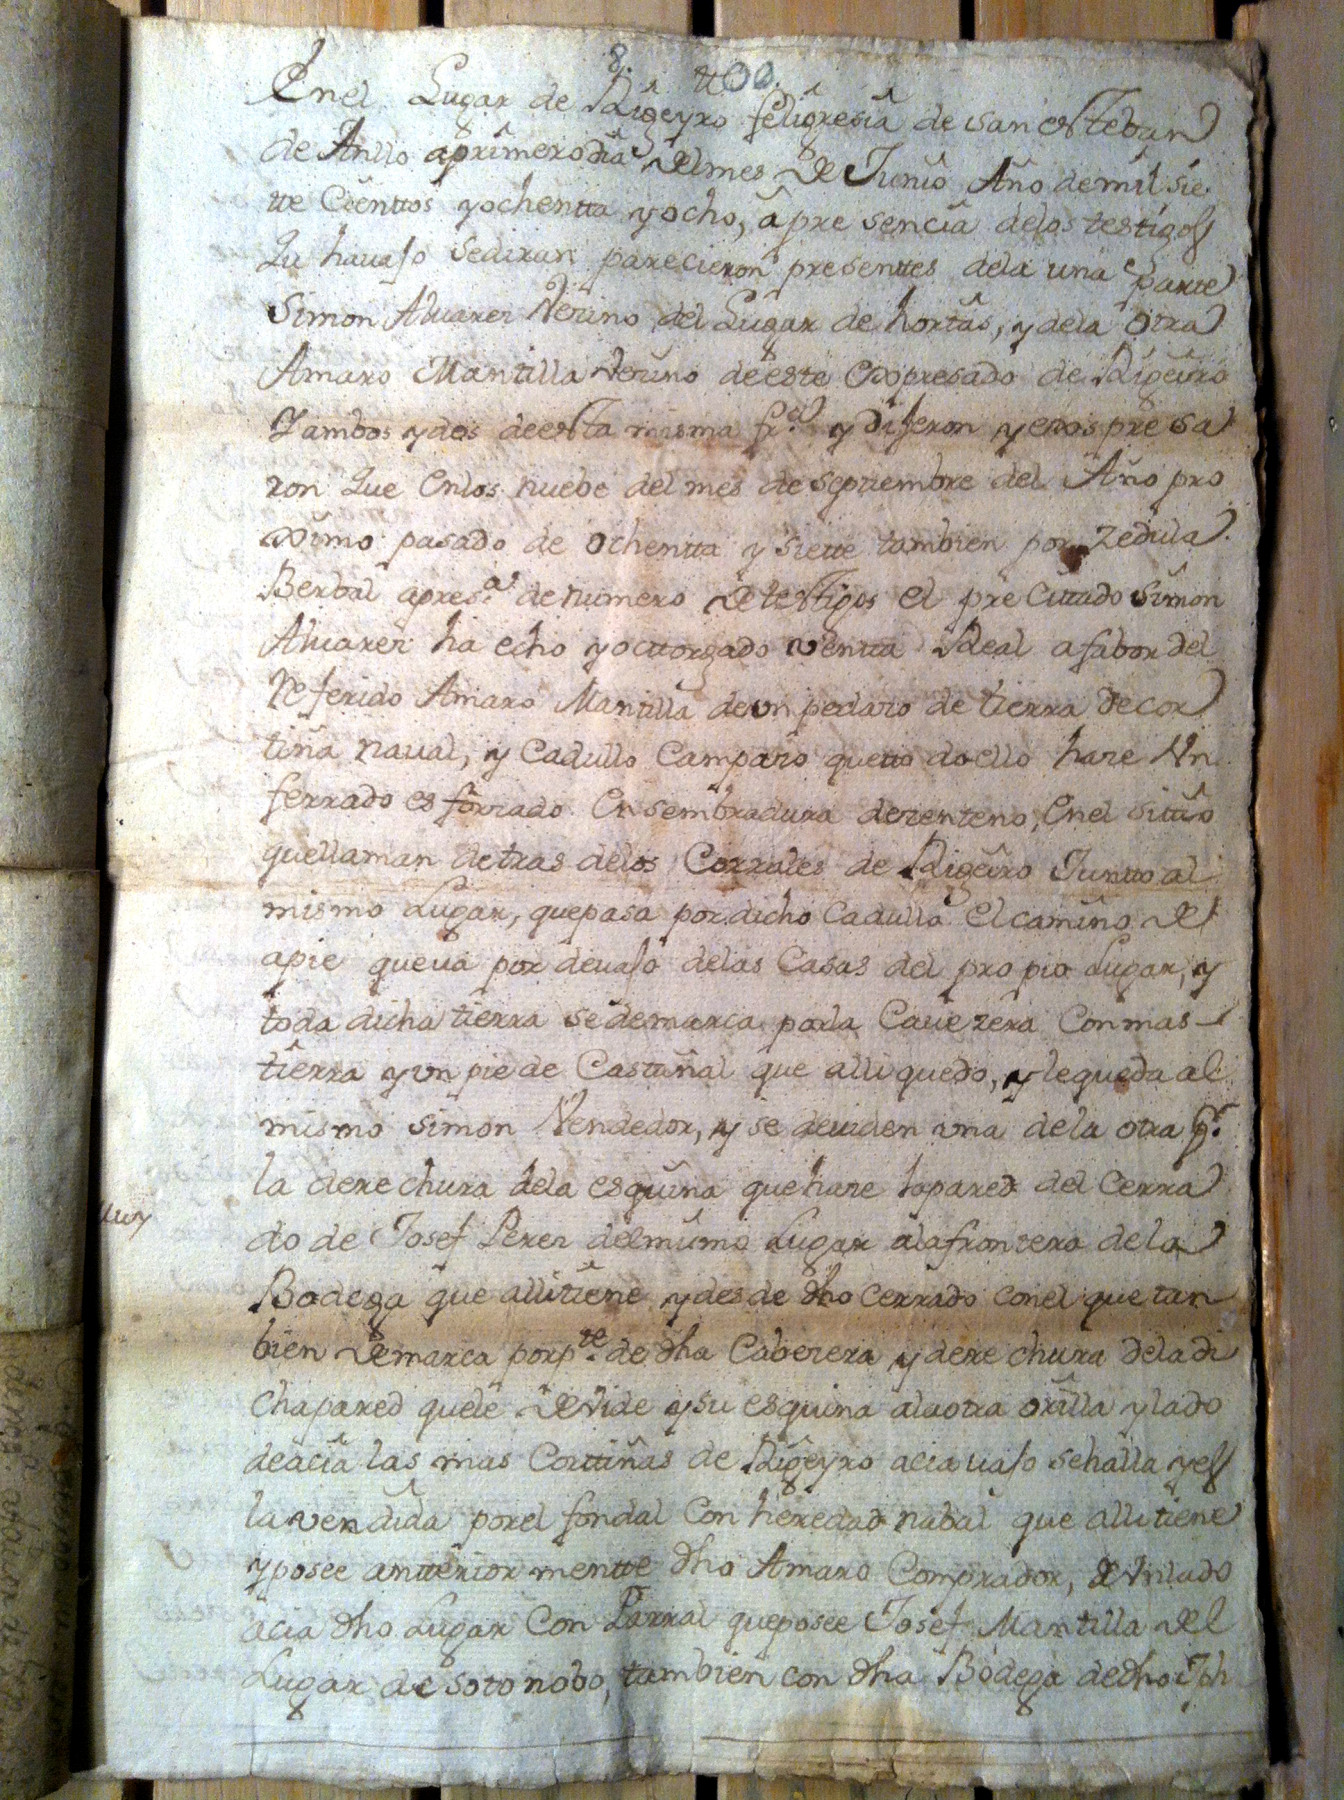 En el Lugar de Rigeyro feligresia de san esTeban
de Anllo a primero dia del mes de Junio Año de mil sie
tte Cienttos y ochentta y ocho, a pre sencia delos testigos
Qu havajo se diran parecieron presenttes dela una parte
Simon Aluarez Vecino del Lugar de hortas, y dela otra
Amaro Mantilla Vecino de este expresado de Rigeiro
Yambos y dos de esTa misma fr.ª y dijeron y espresa
ron Que Enlos nuebe del mes de septiembre del Año pro
ximo pasado de ochentta y siette tambien por Zedula
Berbal apres.ª de numero de tesTigos el pre Cittado Simon
Aluarez ha echo y octtorgado ventta Real a fabor del
Referido Amaro Mantilla de un pedazo de tierra de cor
tiña naual, y Cadullo Campazo que tto do ello haze Vn
ferrado es forzado En sembradura de zenteno, En el sitio
que llaman de tras delos Corrales de Rigeiro Juntto al
mismo Lugar, que pasa por dicho Cadullo el camino de
apie que va por devajo delas Casas del pro pio Lugar, y
toda dicha tierra se demarca por la Cauezera Con mas
tierra y un pie de Castañal que alli quedo, y le queda al
mismo Simon Vendedor, y se deuiden una dela otra p.r
la derechura dela esquina que haze la pared del Cerra
do de Josef Perez del mismo Lugar a la frontera dela
Bodega que alli tiene y des de dho cerrado con el que tan
bien Demarca por p.te de dha Cabezera y derechura dela di
cha pared que le Devide y su esquina a la otra orilla y lado
de acia las mas Corttiñas de Rigeyro acia uajo se halla y es
la vendida por el fondal Con heredad nabal que alli tiene
y posee antterior mentte dho Amaro Comprador, de Vn lado
acia dho Lugar Con Parral que posee Josef Mantilla del
Lugar de soto nobo, tambien con dha Bodega de dho Jph